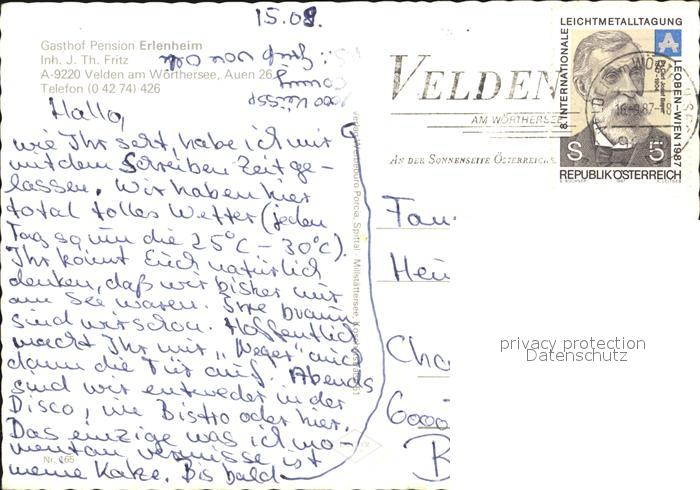 15.09.
Gasthof Pension Erlenheim
Inh. J. Th. Fritz
A-9220 Velden am Wörthersee, Auen 26
Telefon (0 42 74) 426
Hallo,
wie Ihr seht, habe ich mir
mit dem Schreiben Zeit ge-
lassen. Wir haben hier
total tolles Wetter (jeden
Tag so um die 25°C - 30°C).
Ihr könnt Euch natürlich
denken, daß wir bisher nur
am See waren. Irre braun
sind wir schon. Hoffentlich
macht Ihr mir "Neger" auch
dann die Tür auf. Abends
sind wir entweder in der
Disco, im Bistro oder hier.
Das einzige was ich mo-
mentan vermisse ist
meine Katze. Bis bald
1000 Küsse
Conny
Nr. 165
VELDEN
AM WÖRTHERSEE
AN DER SONNENSEITE ÖSTERREICHS
8. INTERNATIONALE
LEICHTMETALLTAGUNG
LEOBEN-WIEN 1987
A
S 5
REPUBLIK ÖSTERREICH
16.-9.87-18
Fam.
Hei
Cha
6000
privacy protection
Datenschutz